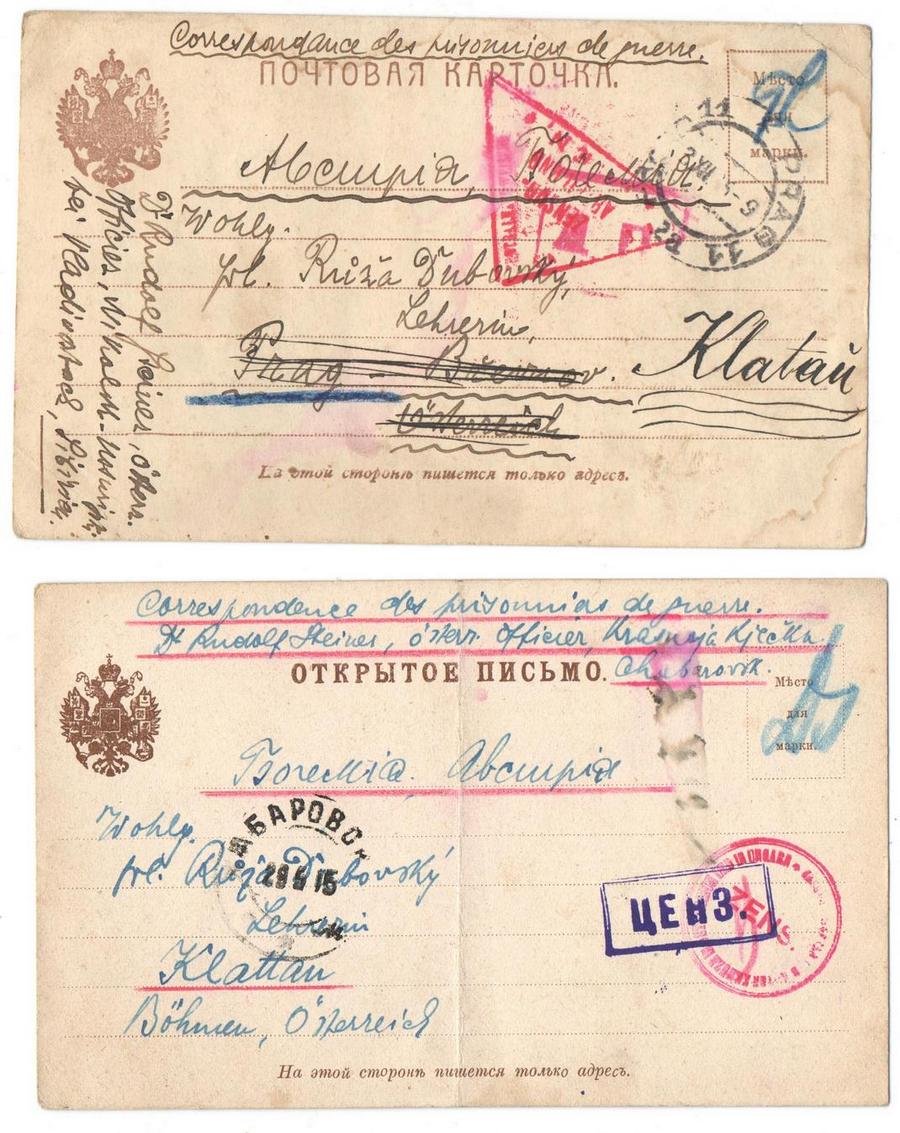 Correspondance des prisonniers de guerre.
ПОЧТОВАЯ КАРТОЧКА.
Мѣсто
для
марки.
Австрія, Богемія.
Wohlg.
frl. Ruiža Dubovský,
Lehrerin,
Prag – Břevnov.
Klatau
Österreich
На этой сторонѣ пишется только адресъ.
Dr Rudolf Steiner, österr.
Officier, Nikolsk-
bei Vladivostock, Sibirien.
PRAG 11
Correspondence des prisonniers de guerre.
Dr Rudolf Steiner, österr. Officier, Krasnaja Rječka
Chabarovsk.
ОТКРЫТОЕ ПИСЬМО.
Мѣсто
для
марки.
Богемія. Австрія
Wohlg.
frl. Ruža Dubovský
Lehrerin
Klattau
Böhmen, Österreich
ХАБАРОВСК
29 9 15
ЦЕНЗ.
ZENS.
На этой сторонѣ пишется только адресъ.